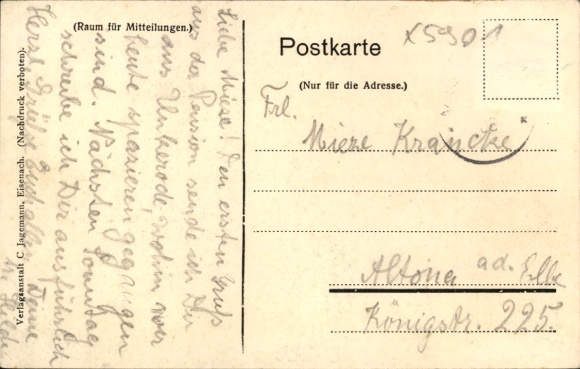 (Raum für Mitteilungen.)
Liebe Mieze! Den ersten Gruß
aus der Pension sende ich Dir
aus Unkerode, wohin wir
heute spazieren gegangen
sind. Nächsten Sonntag
schreibe ich Dir ausführlich
Herzl. Grüße Euch allen, Deine
Verlagsanstalt C. Jagemann, Eisenach. (Nachdruck verboten).
Postkarte
x5901
(Nur für die Adresse.)
Frl.
Mieze
Altona a.d. Elbe
Königstr. 225.